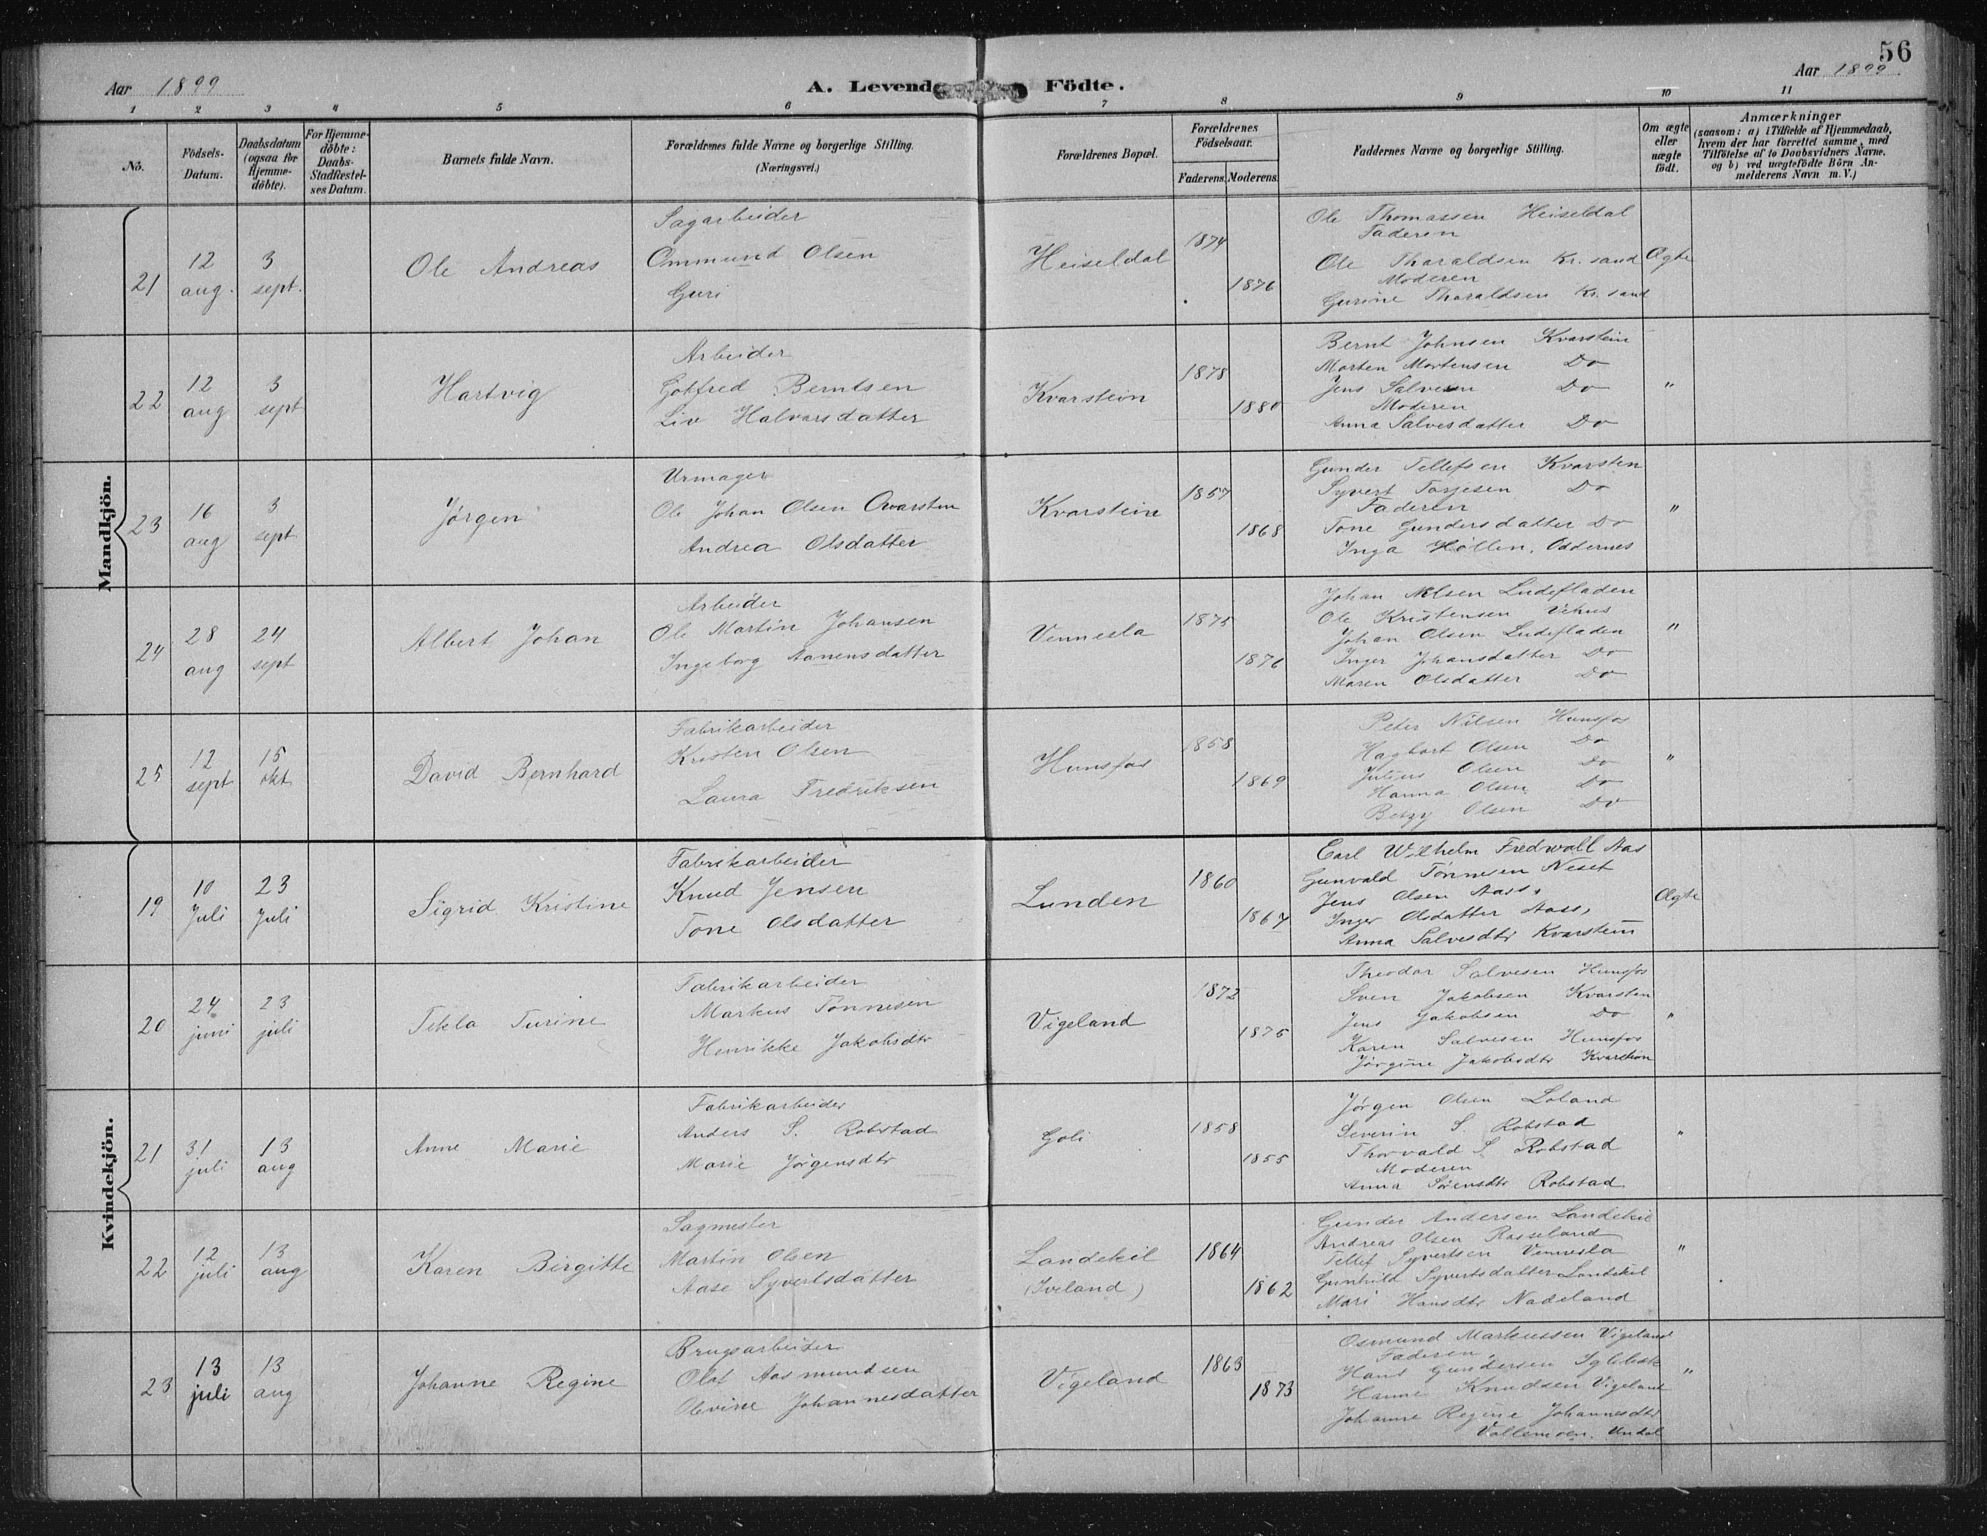 56
Aar 1899
A. Levende Födte.
Aar 1899
1 2 3 4 5 6 7 8 9 10 11
Nô.
Födsels-Datum.
Daabsdatum (ogsaa for Hjemme-döbte).
For Hjemme-döbte: Daabs-Stadfæstel-ses Datum.
Barnets fulde Navn.
Forældrenes fulde Navne og borgerlige Stilling. (Næringsvei.)
Forældrenes Bopæl.
Forældrenes Födselsaar.
Faderens. Moderens.
Faddernes Navne og borgerlige Stilling.
Om ægte eller uægte födt.
Anmærkninger
(saasom: a) i Tilfælde af Hjemmedaab, hvem der har forrettet samme, med Tilföielse af to Daabsvidners Navne, og b) ved uægtefödte Börn An-melderens Navn m. V.)
Mandkjön.
21
12 aug.
3 sept.
Ole Andreas
Sagarbeider
Ommund Olsen
Guri
Heiseldal
1874
1876
Ole Thomassen Heiseldal
Faderen
Ole Tharaldsen Kr. sand
Moderen
Gurine Tharaldsen Kr. sand
Ægte
22
12 aug
3 sept
Hartvig
Arbeider
Gotfred Berntsen
Liv Halvarsdatter
Kvarstein
1878
1880
Bernt Johnsen Kvarstein
Morten Mortensen Do
Jens Salvesen Do
Moderen
Anna Salvesdatter Do
"
23
16 aug
3 sept
Jørgen
Urmager
Ole Johan Olsen Qvarsten
Andrea Olsdatter
Kvarstein
1857
1868
Gunder Tellefsen Kvarsten
Syvert Tarjesen Do
Faderen
Tone Gundersdatter Do
Inga Høllen, Oddernes
"
24
28 aug
24 sept
Albert Johan
Arbeider
Ole Martin Johansen
Ingeborg Aanensdatter
Vennesla
1875
1876
Johan Nilsen Ludefladen
Ole Kristensen Vehus
Johan Olsen Ludefladen
Inger Johansdatter Do
Maren Olsdatter Do
"
25
12 sept
15 okt
David Bernhard
Fabrikarbeider
Kristen Olsen
Laura Fredriksen
Hunsfos
1858
1869
Peter Nilsen Hunsfos
Hagbart Olsen Do
Julius Olsen Do
Hanna Olsen Do
Betzy Olsen Do
"
Kvindekjön.
19
10 Juli
23 Juli
Sigrid Kristine
Fabrikarbeider
Knud Jensen
Tone Olsdatter
Lunden
1860
1867
Carl Wilhelm Fredwall Aas
Gunvald Tønnesen Neset
Jens Olsen Aas,
Inger Olsdatter Aas,
Anna Salvesdtr Kvarstein
Ægte
20
24 juni
23 juli
Tekla Turine
Fabrikarbeider
Markus Tønnesen
Henrikke Jakobsdtr
Vigeland
1872
1875
Theodor Salvesen Hunsfos
Sven Jakobsen Kvarsten
Jens Jakobsen Do
Karen Salvesen Hunsfos
Jørgine Jakobsdtr Kvarstein
"
21
31 juli
13 aug
Anne Marie
Fabrikarbeider
Anders S. Robstad
Marie Jørgensdtr
Goli
1858
1855
Jørgen Olsen Loland
Severin S. Robstad
Thorvald S. Robstad
Moderen
Anna Sørensdtr Robstad
"
22
12 juli
13 aug
Karen Birgitte
Sagmester
Martin Olsen
Aase Syvertsdatter
Landekil
(Iveland)
1864
1862
Gunder Andersen Landekil
Andreas Olsen Rosseland
Tellef Syvertsen Vennesla
Gunhild Syvertsdatter Landekil
Mari Hansdtr Nadeland
"
23
13 juli
13 aug
Johanne Regine
Brugsarbeider
Olaf Aasmundsen
Olevine Johannesdatter
Vigeland
1863
1873
Osmund Markussen Vigeland
Faderen,
Hans Gundersen
Hanne Knudsen Vigeland
Johanne Regine Johannesdtr
Vallemoen. Undal
"